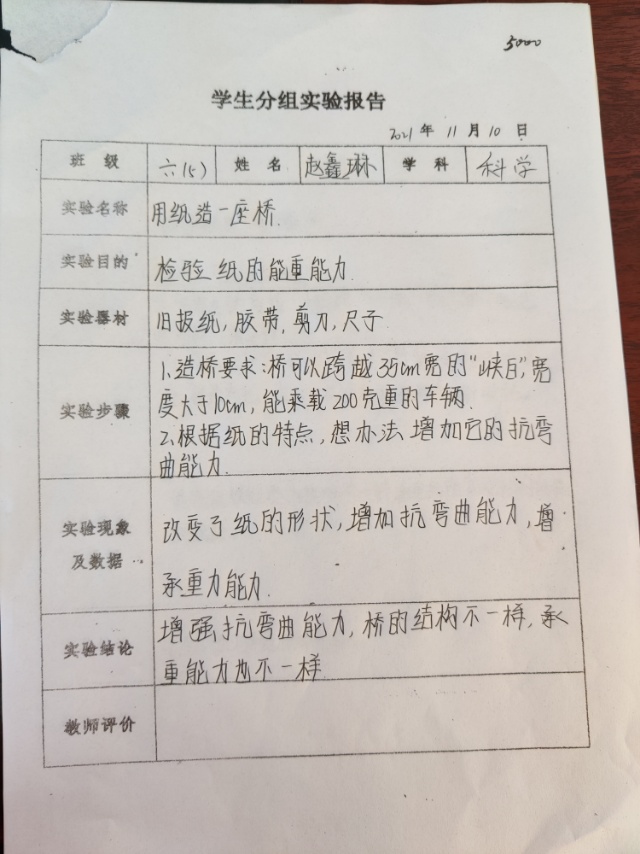 5000
学生分组实验报告
2021 年 11 月 10 日
班 级 六(5) 姓 名 赵鑫琳 学 科 科学
实验名称 用纸造一座桥.
实验目的 检验纸的能重能力.
实验器材 旧报纸,胶带,剪刀,尺子.
实验步骤
1.造桥要求:桥可以跨越35cm宽的“峡后”,宽
度大于10cm,能乘载200克重的车辆.
2.根据纸的特点,想办法增加它的抗弯
曲能力.
实验现象
及数据
改变了纸的形状,增加抗弯曲能力,增
承重力能力.
实验结论
增强抗弯曲能力,桥的结构不一样,承
重能力也不一样
教师评价